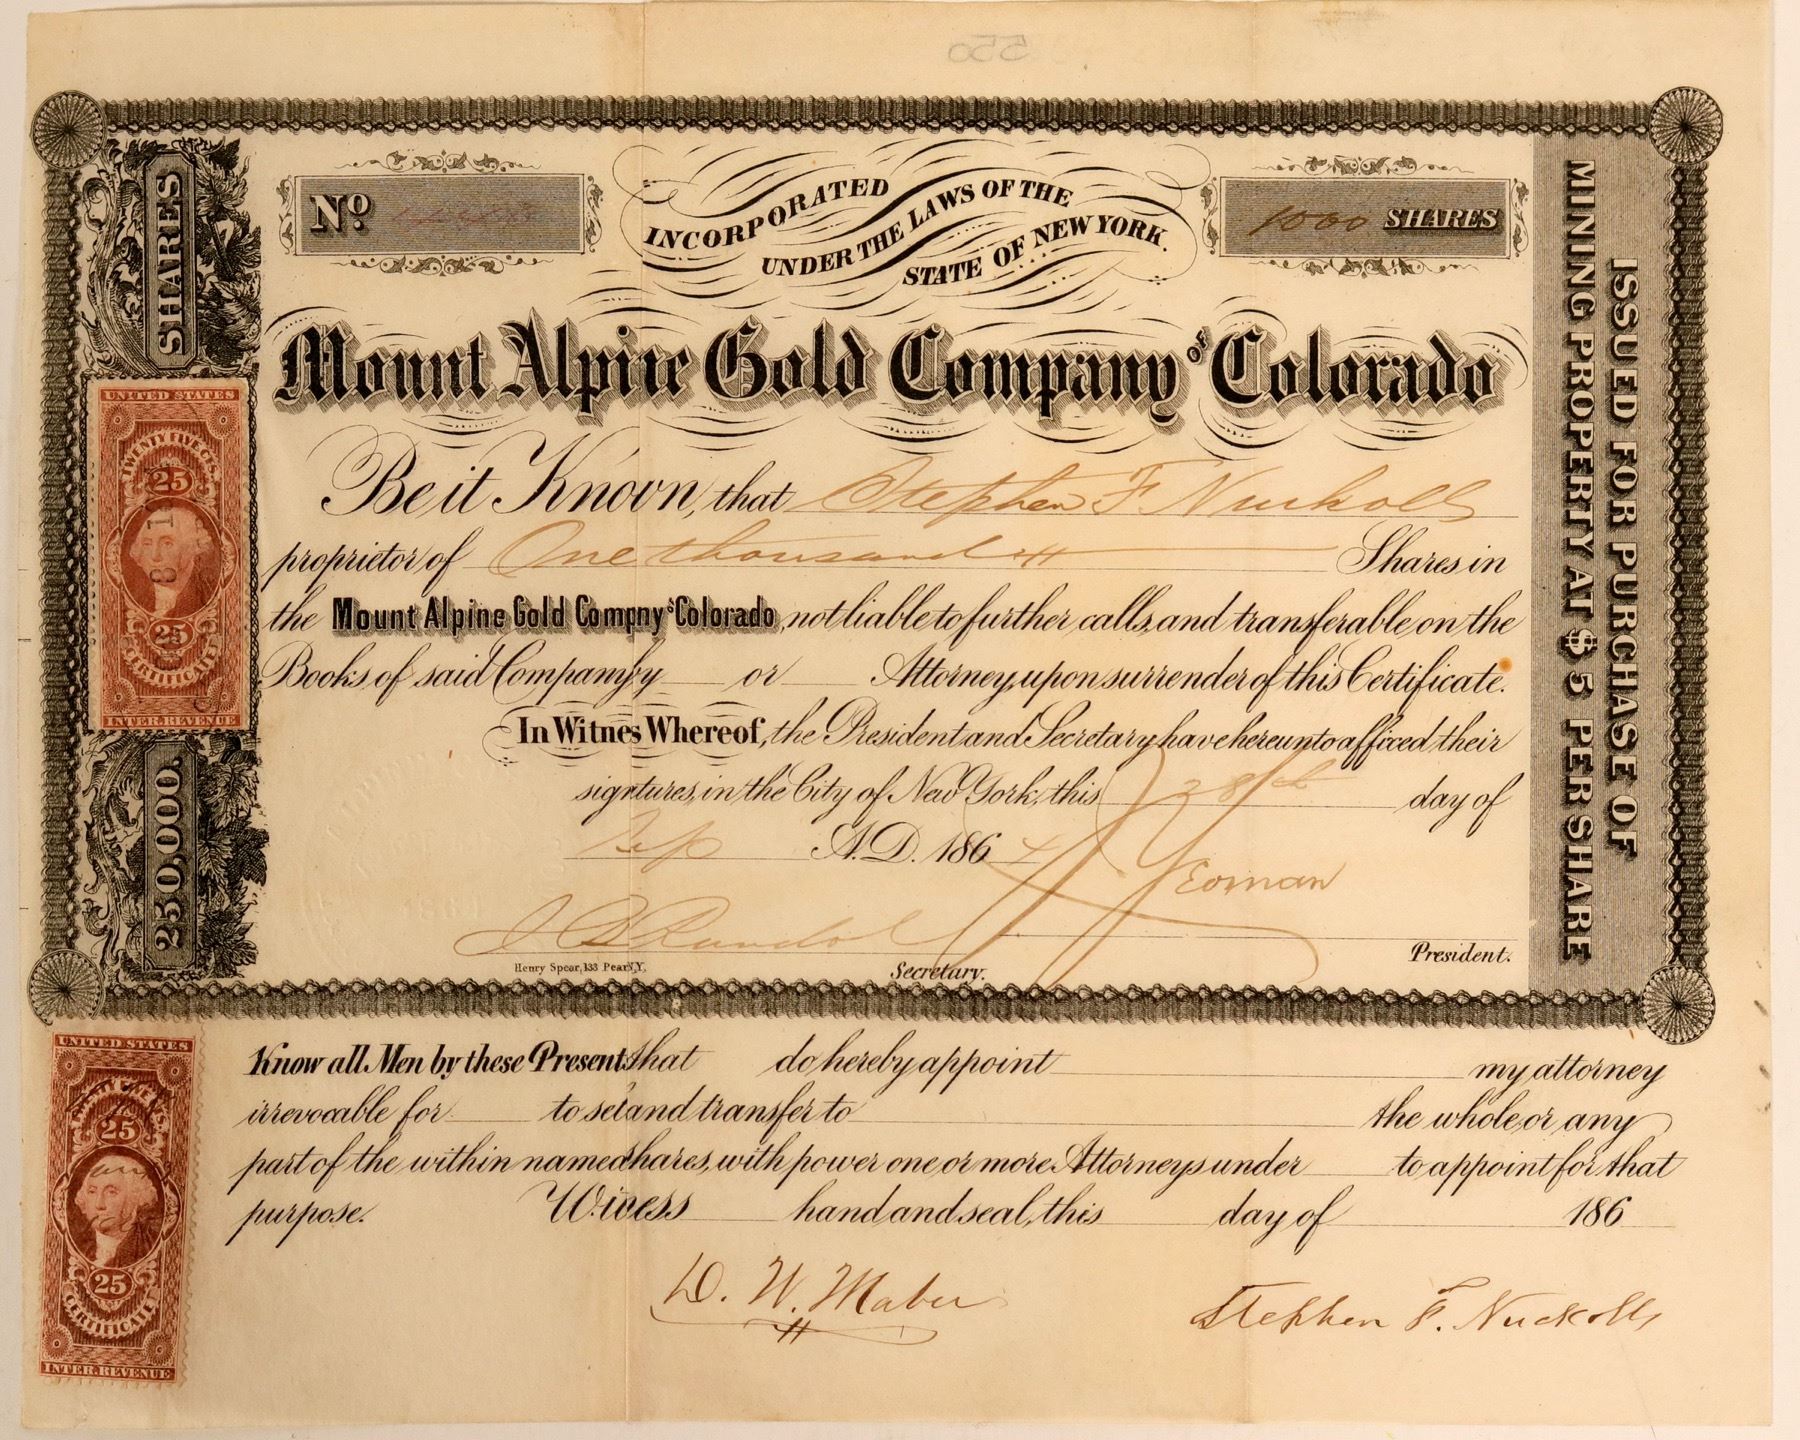 550
SHARES
250,000.
No
INCORPORATED
UNDER THE LAWS OF THE
STATE OF NEW YORK.
1000 SHARES
Mount Alpine Gold Company of Colorado
Be it Known, that Stephen F Nuckolls
proprietor of One thousand Shares in
the Mount Alpine Gold Compny of Colorado, not liable to further calls, and transferable on the
Books of said Company by or Attorney, upon surrender of this Certificate.
In Witnes Whereof, the President and Secretary have hereunto afficed their
signtures, in the City of New York, this 28th day of
Sep A.D. 1864
Yeoman
President.
Secretary.
Henry Spear, 133 Pearl N.Y.
ISSUED FOR PURCHASE OF
MINING PROPERTY AT $5 PER SHARE
UNITED STATES
TWENTY FIVE CTS.
25
25
CERTIFICATE
INTER. REVENUE
Know all Men by these Presents that do hereby appoint my attorney
irrevocable for to sel and transfer to the whole, or any
part of the within named shares, with power one or more Attorneys under to appoint for that
purpose. Witness hand and seal, this day of 186
UNITED STATES
25
25
CERTIFICATE
INTER. REVENUE
D. W. Maber
Stephen F. Nuckolls